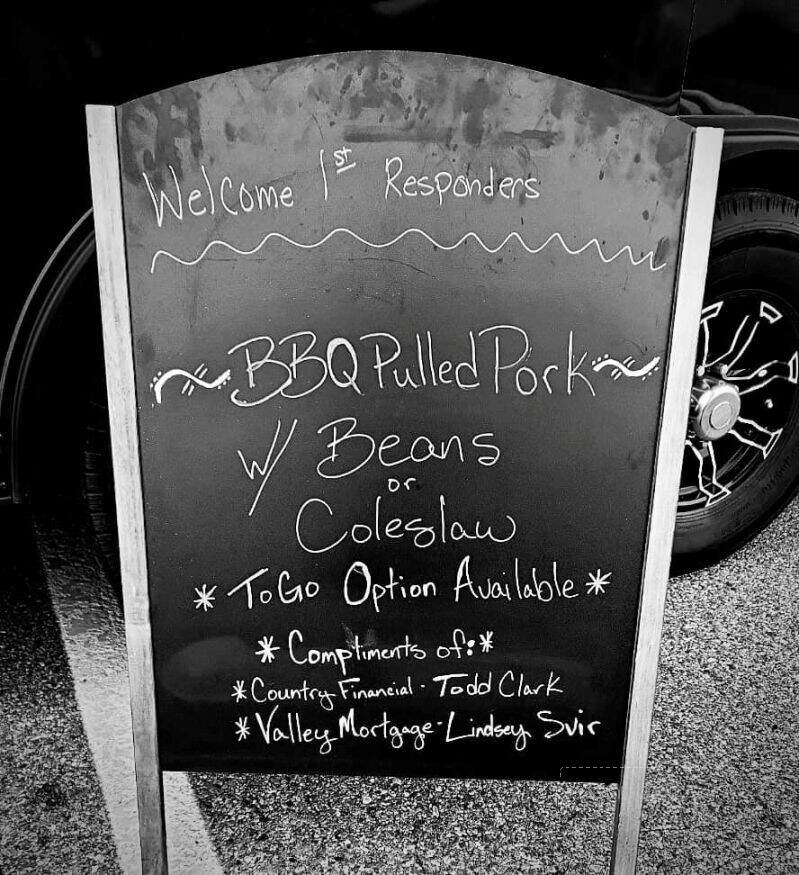 Welcome 1st Responders
BBQ Pulled Pork
w/ Beans
or
Coleslaw
* ToGo Option Available *
* Compliments of: *
* Country Financial - Todd Clark
* Valley Mortgage - Lindsey Svir